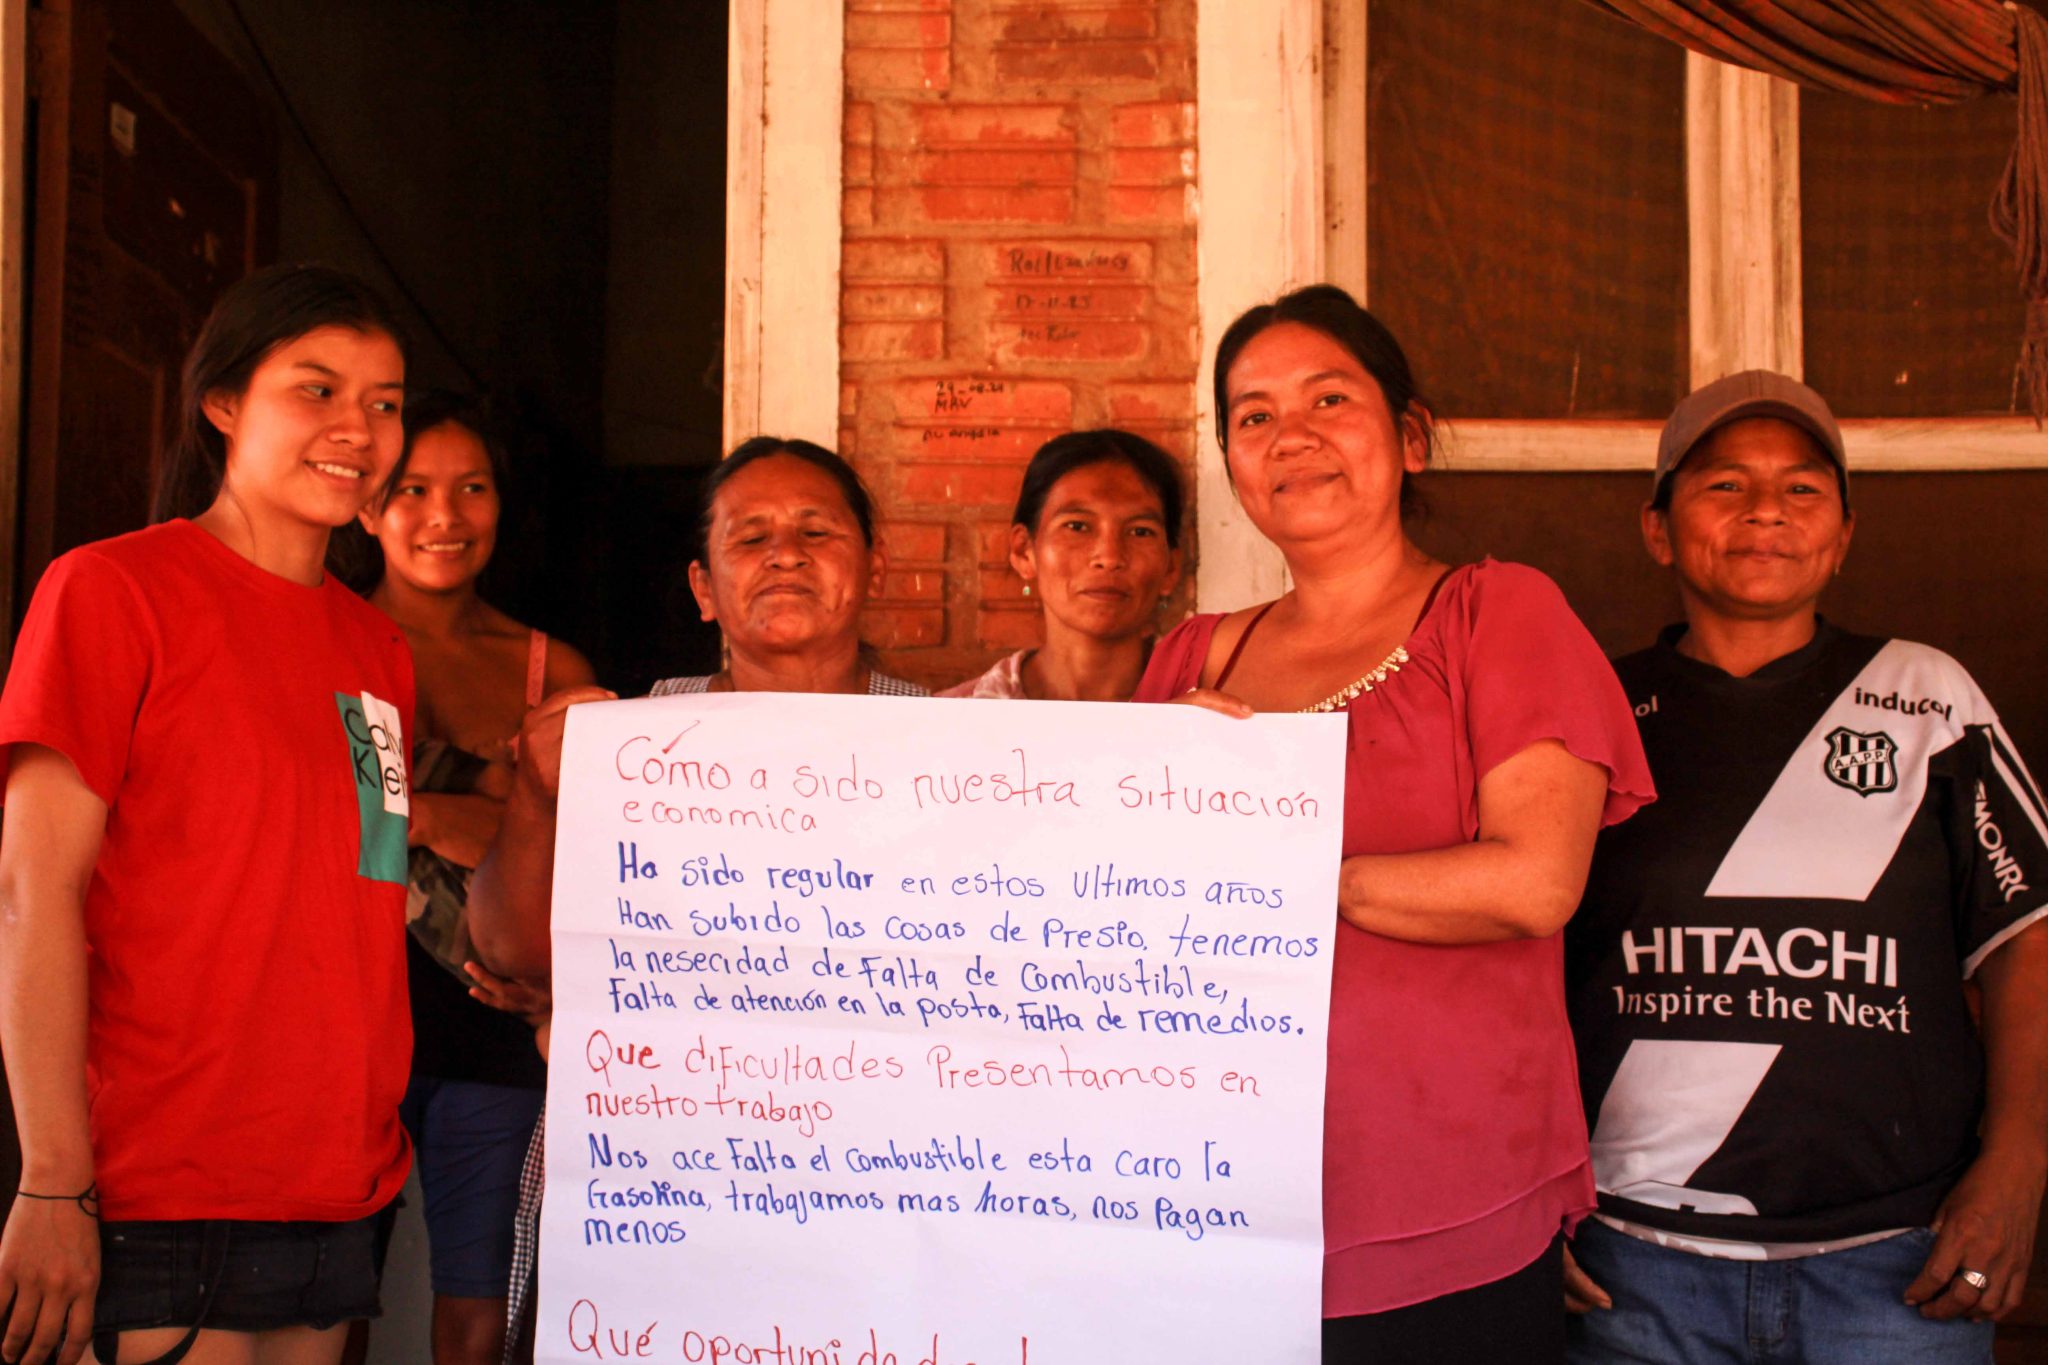 Cómo a sido nuestra situación
economica
Ha sido regular en estos ultimos años
Han subido las cosas de Presio, tenemos
la nesecidad de falta de combustible,
falta de atención en la posta, falta de remedios.
Que dificultades Presentamos en
nuestro trabajo
Nos ace falta el combustible esta caro la
Gasolina, trabajamos mas horas, nos Pagan
menos
Qué
Calv
Klein
inducol
ol
A.A.P.P.
HITACHI
Inspire the Next
29-08-21